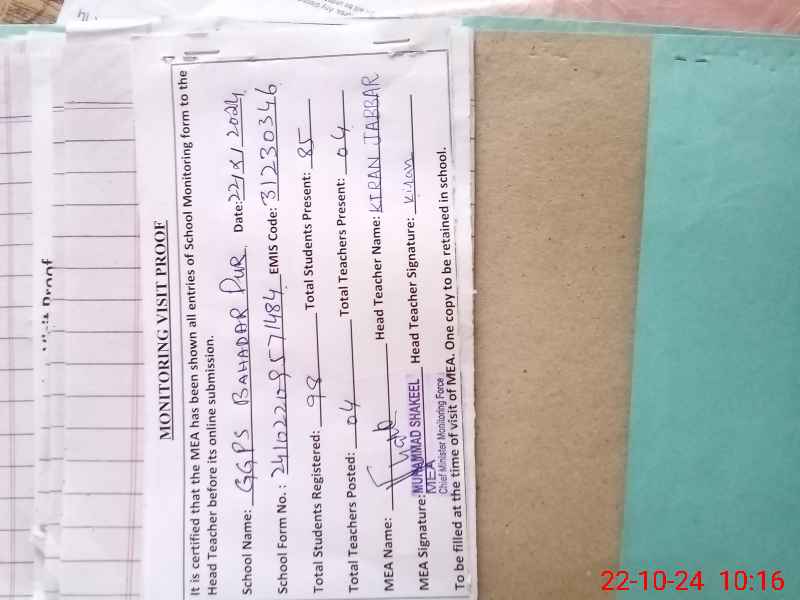 MONITORING VISIT PROOF
It is certified that the MEA has been shown all entries of School Monitoring form to the
Head Teacher before its online submission.
School Name: GGPS BAHADAR PUR Date: 22/X/2024
School Form No.: 241022109571484 EMIS Code: 31230346
Total Students Registered: 98 Total Students Present: 85
Total Teachers Posted: 04 Total Teachers Present: 04
MEA Name: Head Teacher Name: KIRAN JABBAR
MEA Signature: MUHAMMAD SHAKEEL Head Teacher Signature: Kiran
MEA
Chief Minister Monitoring Force
To be filled at the time of visit of MEA. One copy to be retained in school.
22-10-24 10:16